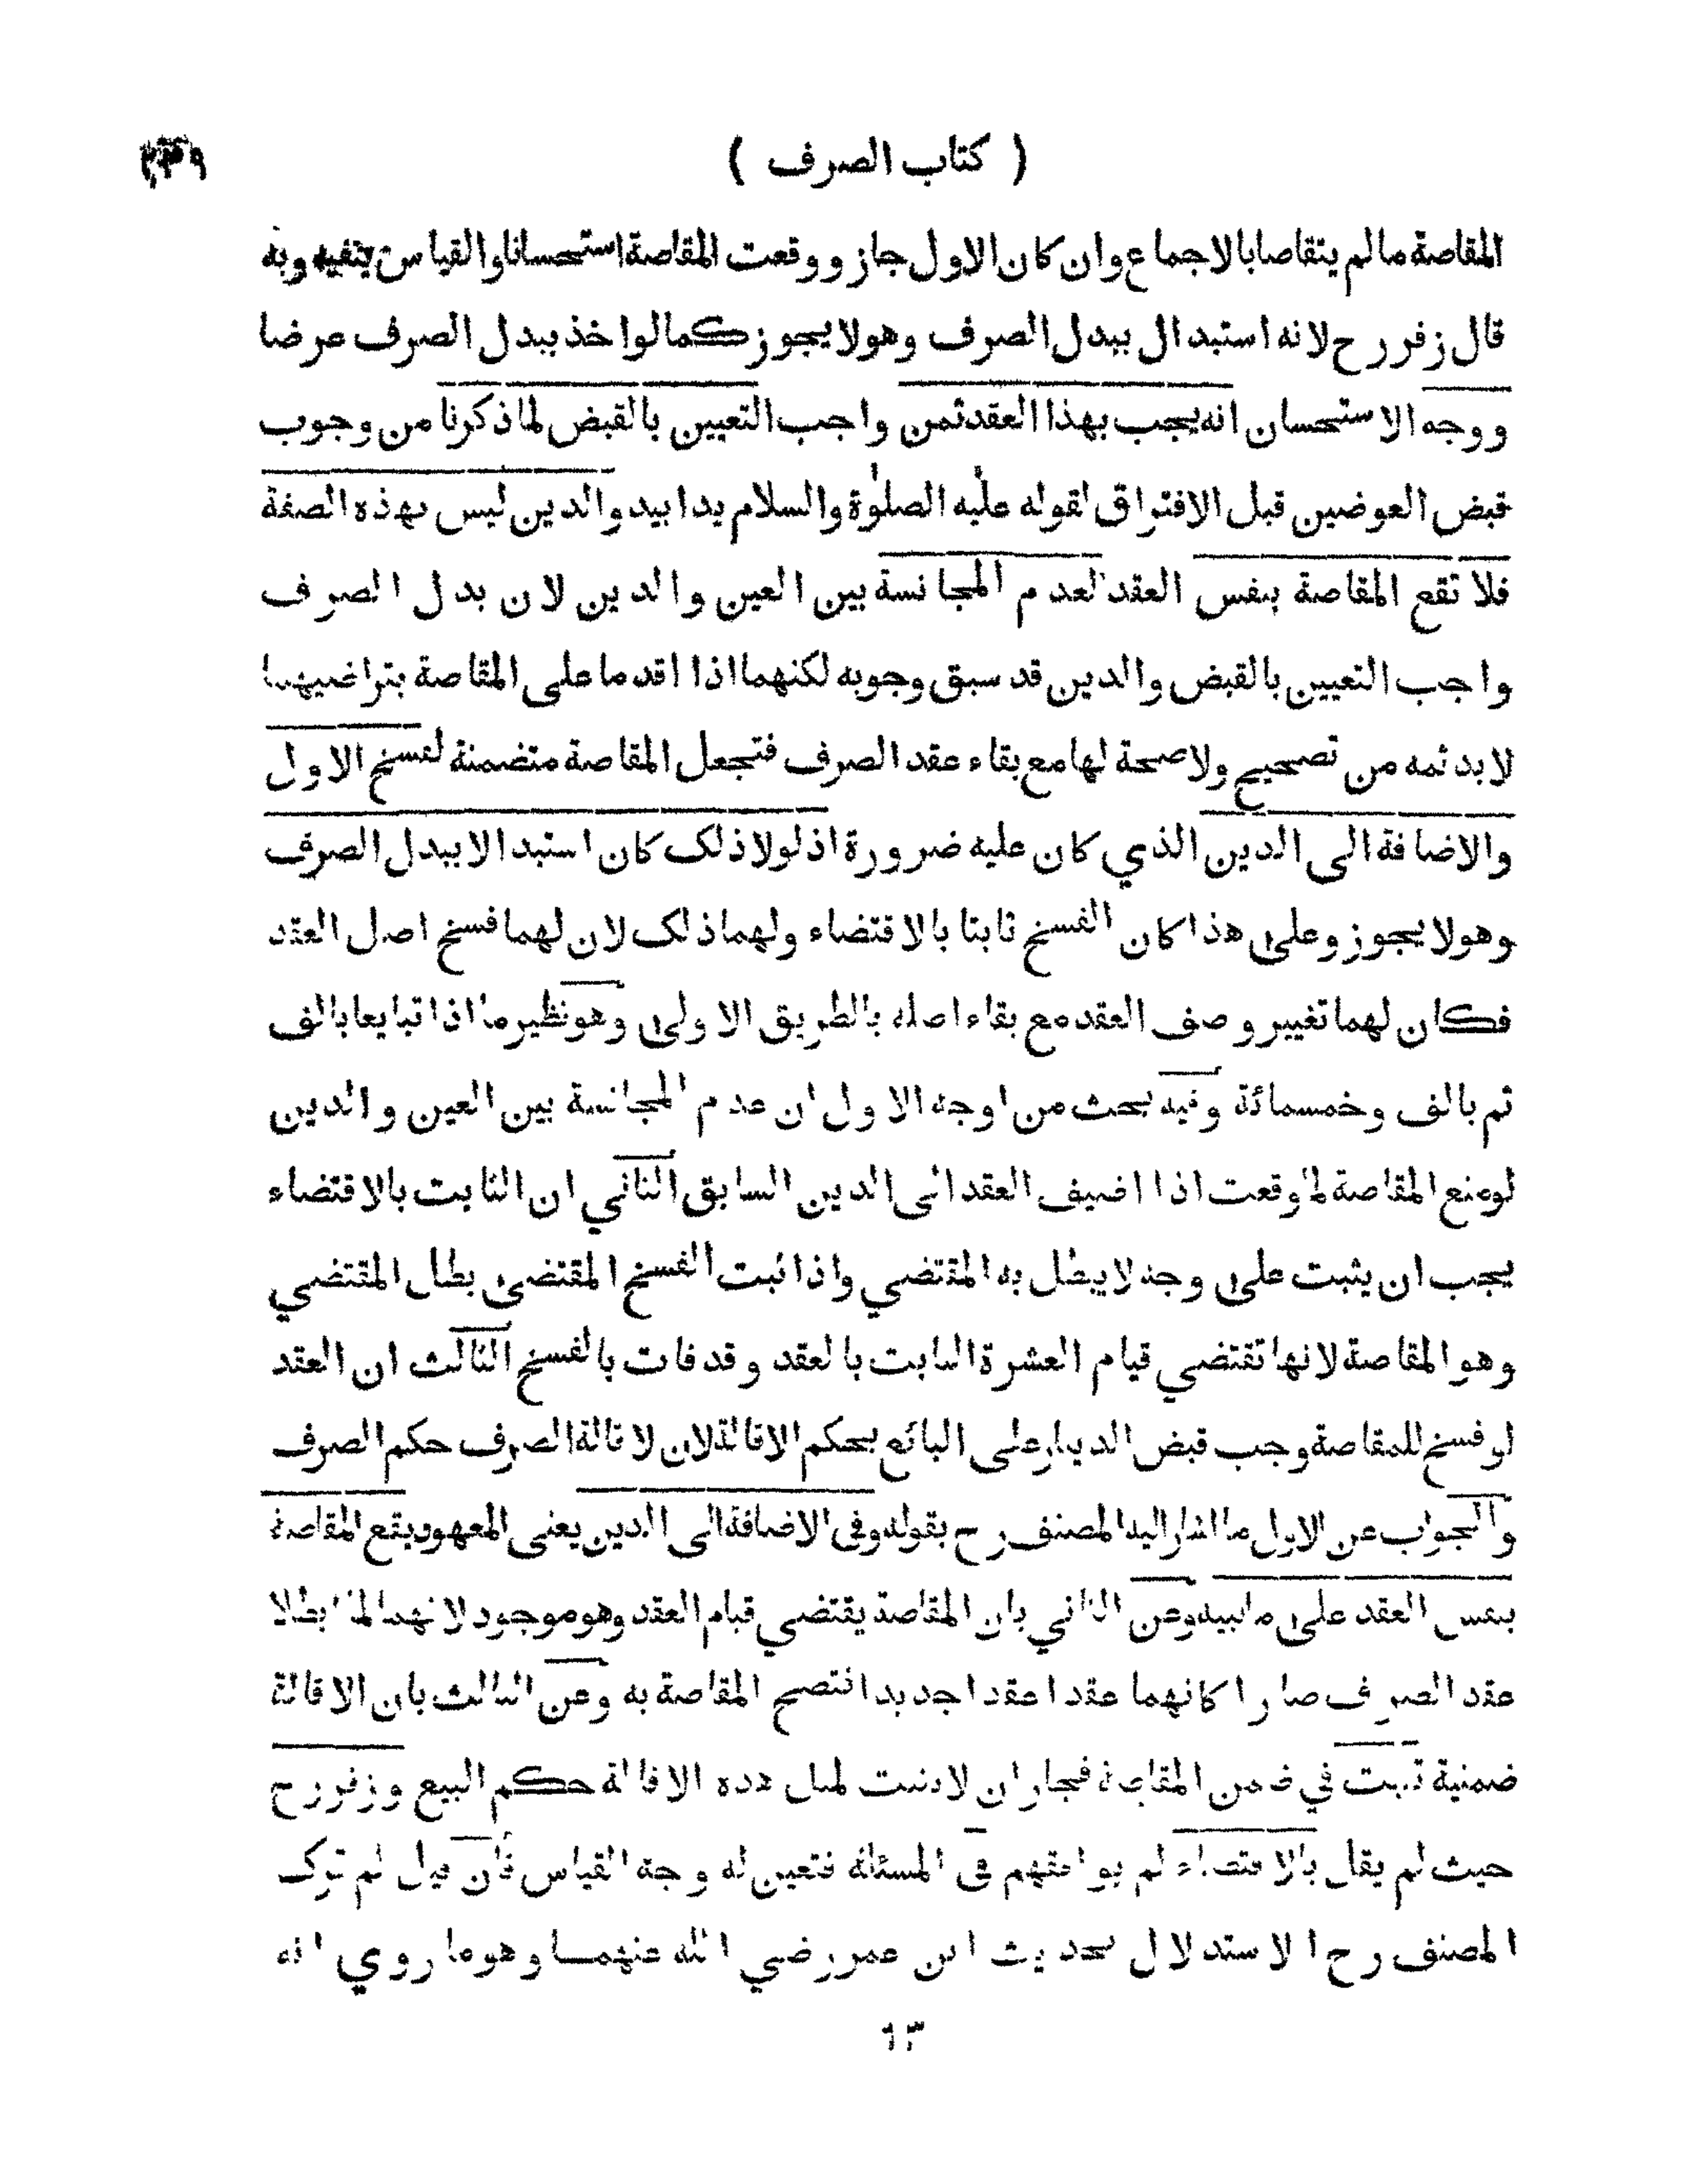 ( كتاب الصرف )
المقاصة مالم يتقاصا بالاجماع وان كان الاول جاز ووقعت المقاصة استحسانا والقياس ينفيه وبه
قال زفر رح لانه استبدال ببدل الصرف وهو لا يجوز كما لو اخذ ببدل الصرف عرضا
ووجه الاستحسان انه يجب بهذا العقد ثمن واجب التعيين بالقبض لما ذكرنا من وجوب
قبض العوضين قبل الافتراق لقوله عليه الصلوة والسلام يدا بيد والدين ليس بهذه الصفة
فلا تقع المقاصة بنفس العقد لعدم المجانسة بين العين والدين لان بدل الصرف
واجب التعيين بالقبض والدين قد سبق وجوبه لكنهما اذا اقدما على المقاصة بتراضيهما
لا بد ثمه من تصحيح ولا صحة لها مع بقاء عقد الصرف فتجعل المقاصة متضمنة لفسخ الاول
والاضافة الى الدين الذي كان عليه ضرورة اذ لولا ذلك كان استبدالا ببدل الصرف
وهو لا يجوز وعلى هذا كان الفسخ ثابتا بالاقتضاء ولهما ذلك لان لهما فسخ اصل العقد
فكان لهما تغيير وصف العقد مع بقاء اصله بالطريق الاولى وهو نظير ما اذا تبايعا بالف
ثم بالف وخمسمائة وفيه بحث من اوجه الاول ان عدم المجانسة بين العين والدين
لو منع المقاصة لما وقعت اذا اضيف العقد الى الدين السابق الثاني ان الثابت بالاقتضاء
يجب ان يثبت على وجه لا يبطل به المقتضي واذا ثبت الفسخ المقتضى بطل المقتضي
وهو المقاصة لانها تقتضي قيام العشرة الثابت بالعقد وقد فات بالفسخ الثالث ان العقد
لو فسخ للمقاصة وجب قبض الدينار على البائع بحكم الاقالة لان لاقالة الصرف حكم الصرف
والجواب عن الاول ما اشار اليه المصنف رح بقوله وفى الاضافة الى الدين يعنى المعهود يقع المقاصة
بنفس العقد على ما نبينه وعن الثاني بان المقاصة يقتضي قيام العقد وهو موجود لانهما لما ابطلا
عقد الصرف صارا كانهما عقدا عقدا جديدا فتصح المقاصة به وعن الثالث بان الاقالة
ضمنية تثبت في ضمن المقاصة فجاز ان لا يثبت لمثل هذه الاقالة حكم البيع وزفر رح
حيث لم يقل بالاقتضاء لم يوافقهم فى المسئلة فتعين له وجه القياس فان قيل لم ترك
المصنف رح الاستدلال بحديث ابن عمر رضي الله عنهما وهو ما روي انه